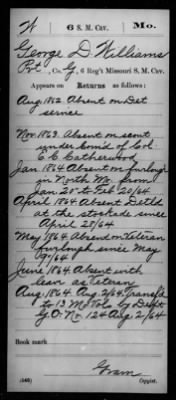 W 6 S. M. Cav. Mo.
George D Williams
Pvt, Co. G, 6 Reg't Missouri S. M. Cav.
Appears on Returns as follows:
Aug 1862. Absent on Det
service
Nov. 1863. Absent on scout
under com'd of Col.
E C Catherwood
Jan 1864 Absent on furlough
in North Mo. from
Jan 25 to Feb 20/64
April 1864 Absent Det'ld
at the stockade since
April 25/64
May 1864 Absent on Veteran
furlough since May
/64
June 1864. Absent with
leave as Veteran
Aug. 1864. Aug. 2/64 transf'd
to 13 Mo Vols by Dept
G.O. No. 124 Aug 2/64
Book mark:
(546) Copyist.